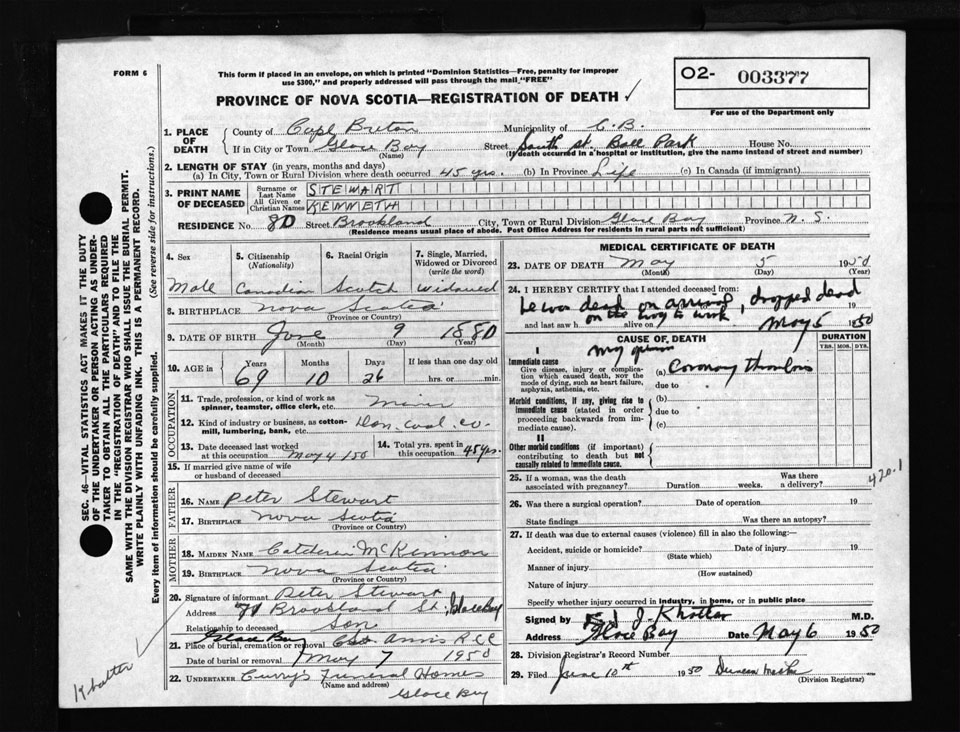 FORM 6
This form if placed in an envelope, on which is printed "Dominion Statistics—Free, penalty for improper
use $300," and properly addressed will pass through the mail "FREE"
O2- 003377
PROVINCE OF NOVA SCOTIA—REGISTRATION OF DEATH ✓
For use of the Department only
SEC. 46—VITAL STATISTICS ACT MAKES IT THE DUTY
OF THE UNDERTAKER OR PERSON ACTING AS UNDER-
TAKER TO OBTAIN ALL THE PARTICULARS REQUIRED
IN THE "REGISTRATION OF DEATH" AND TO FILE THE
SAME WITH THE DIVISION REGISTRAR WHO SHALL ISSUE THE BURIAL PERMIT.
WRITE PLAINLY WITH UNFADING INK. THIS IS A PERMANENT RECORD.
Every item of information should be carefully supplied. (See reverse side for instructions.)
1. PLACE OF DEATH County of Cape Breton Municipality of C.B.
If in City or Town Glace Bay Street South St. Ball Park House No.
(Name) (If death occurred in a hospital or institution, give the name instead of street and number)
2. LENGTH OF STAY (in years, months and days)
(a) In City, Town or Rural Division where death occurred 45 yrs. (b) In Province Life (c) In Canada (if immigrant)
3. PRINT NAME OF DECEASED Surname or Last Name STEWART
All Given or Christian Names KENNETH
RESIDENCE No. 8D Street Brookland City, Town or Rural Division Glace Bay Province N.S.
(Residence means usual place of abode. Post Office Address for residents in rural parts not sufficient)
4. Sex 5. Citizenship (Nationality) 6. Racial Origin 7. Single, Married, Widowed or Divorced (write the word)
Male Canadian Scotch Widowed
8. BIRTHPLACE Nova Scotia
(Province or Country)
9. DATE OF BIRTH June 9 1880
(Month) (Day) (Year)
10. AGE in Years Months Days If less than one day old
69 10 26 hrs. or min.
OCCUPATION
11. Trade, profession, or kind of work as spinner, teamster, office clerk, etc. Miner
12. Kind of industry or business, as cotton-mill, lumbering, bank, etc. Dom. Coal Co.
13. Date deceased last worked at this occupation May 4/50 14. Total yrs. spent in this occupation 45 yrs.
15. If married give name of wife or husband of deceased
FATHER
16. NAME Peter Stewart
17. BIRTHPLACE Nova Scotia
(Province or Country)
MOTHER
18. MAIDEN NAME McKinnon
19. BIRTHPLACE Nova Scotia
(Province or Country)
20. Signature of informant Peter Stewart
Address Brookland St., Glace Bay
Relationship to deceased Son
21. Place of burial, cremation or removal Glace Bay St. Anns R.C.C
Date of burial or removal May 7 1950
22. UNDERTAKER Curry's Funeral Homes
(Name and address)
Glace Bay
Khattar
MEDICAL CERTIFICATE OF DEATH
23. DATE OF DEATH May 5 1950
(Month) (Day) (Year)
24. I HEREBY CERTIFY that I attended deceased from:
He was dead on arrival, dropped dead 19
on the way to work
and last saw h alive on May 5 1950
CAUSE OF DEATH DURATION
YRS. MOS. DYS.
my opinion
I
Immediate cause
Give disease, injury or complication which caused death, NOT the mode of dying, such as heart failure, asphyxia, asthenia, etc.
(a) Coronary thrombosis
due to
Morbid conditions, if any, giving rise to immediate cause (stated in order proceeding backwards from immediate cause).
(b)
due to
(c)
II
Other morbid conditions (if important) contributing to death but not causally related to immediate cause.
420.1
25. If a woman, was the death associated with pregnancy? Duration weeks. Was there a delivery?
26. Was there a surgical operation? Date of operation 19
State findings Was there an autopsy?
27. If death was due to external causes (violence) fill in also the following:—
Accident, suicide or homicide? Date of injury 19
(State which)
Manner of injury
(How sustained)
Nature of injury
Specify whether injury occurred in industry, in home, or in public place
Signed by J. Khattar M.D.
Address Glace Bay Date May 6 1950
28. Division Registrar's Record Number
29. Filed June 10th 1950 Duncan
(Division Registrar)